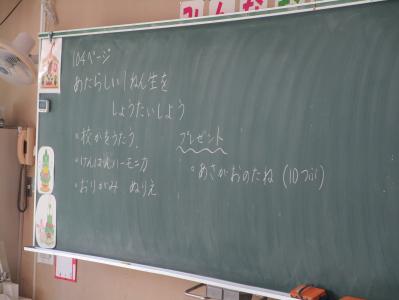 みんな
104ページ
あたらしい1ねん生を
しょうたいしよう
・校かをうたう
・けんばんハーモニカ
・おりがみ ぬりえ
プレゼント
・あさがおのたね (10つぶ)